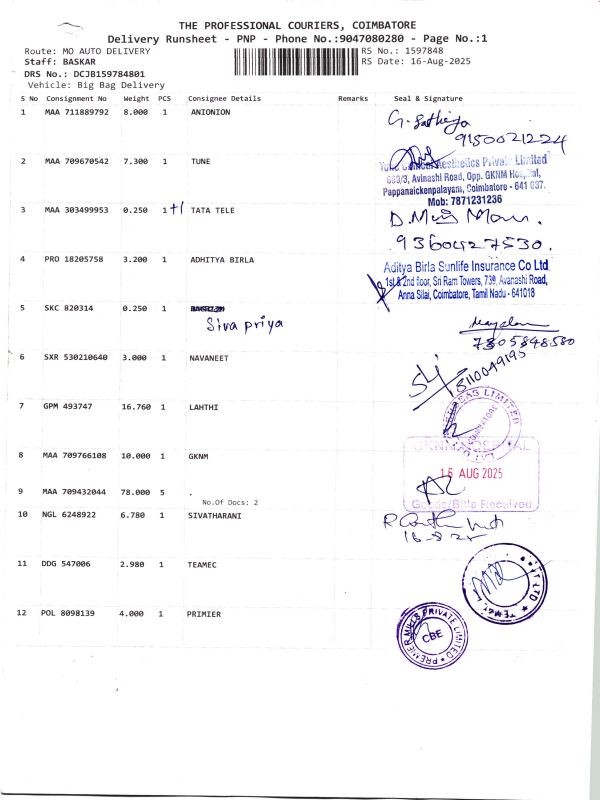 THE PROFESSIONAL COURIERS, COIMBATORE
Delivery Runsheet - PNP - Phone No.:9047080280 - Page No.:1
Route: MO AUTO DELIVERY
RS No.: 1597848
Staff: BASKAR
RS Date: 16-Aug-2025
DRS No.: DCJB159784801
Vehicle: Big Bag Delivery
S No Consignment No Weight PCS Consignee Details Remarks Seal & Signature
1 MAA 711889792 8.000 1 ANIONION
G. Sathiya
9150021224
2 MAA 709670542 7.300 1 TUNE
Aesthetics Private Limited
680/3, Avinashi Road, Opp. GKNM Hospital,
Pappanaickenpalayam, Coimbatore - 641 037.
Mob: 7871231236
3 MAA 303499953 0.250 1 +1 TATA TELE
9360427530.
4 PRO 18205758 3.200 1 ADHITYA BIRLA
Aditya Birla Sunlife Insurance Co Ltd
1st & 2nd floor, Sri Ram Towers, 739, Avanashi Road,
Anna Silai, Coimbatore, Tamil Nadu - 641018
5 SKC 820314 0.250 1
Siva priya
7305848580
6 SXR 530210640 3.000 1 NAVANEET
8110049195
7 GPM 493747 16.760 1 LAHTHI
LIMITED
COIMBATORE
8 MAA 709766108 10.000 1 GKNM
GKNM HOSPITAL
16 AUG 2025
Goods/Bills Received
9 MAA 709432044 78.000 5 .
No.Of Docs: 2
10 NGL 6248922 6.780 1 SIVATHARANI
16-8-25
11 DDG 547006 2.980 1 TEAMEC
12 POL 8098139 4.000 1 PRIMIER
PREMIER MILLS PRIVATE LIMITED
CBE